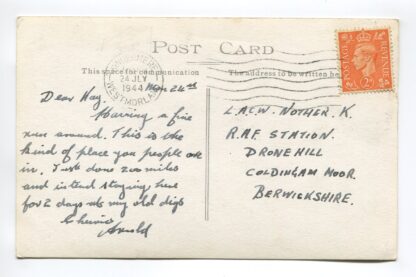 POST CARD
This space for communication
The address to be written here
WINDERMERE
24 JLY
1944
WESTMORLAND
POSTAGE
REVENUE
2D
24th
Dear Kay.
Having a fine
run around. This is the
kind of place you people are
in. Just done 200 miles
and intend staying here
for 2 days at my old digs
Cheerio
Arnold
L.A.C.W. NOTHER. K.
R.A.F STATION.
DRONEHILL
COLDINGAM MOOR.
BERWICKSHIRE.